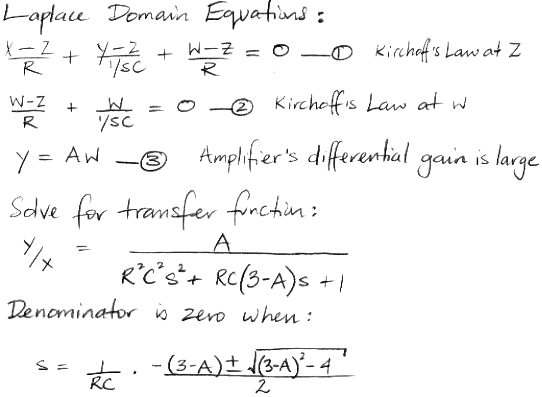 Laplace Domain Equations :
X-Z/R + Y-Z/1/SC + W-Z/R = 0 — ① Kirchoff's Law at Z
W-Z/R + W/1/SC = 0 — ② Kirchoff's Law at W
Y = AW — ③ Amplifier's differential gain is large
Solve for transfer function :
Y/X = A / R²C²s² + RC(3-A)s + 1
Denominator is zero when :
s = 1/RC . -(3-A) ± √(3-A)² - 4 / 2